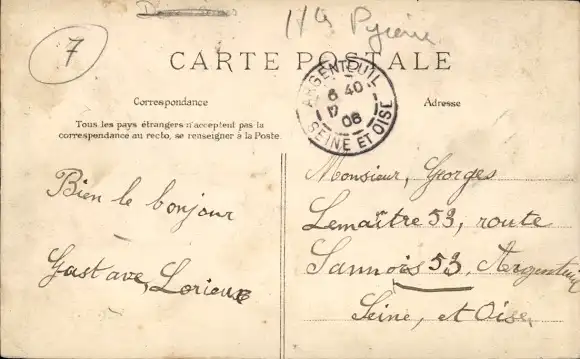 7
Hte Pyrénée
CARTE POSTALE
ARGENTEUIL
6 40
12
06
SEINE ET OISE
Correspondance
Adresse
Tous les pays étrangers n'acceptent pas la
correspondance au recto, se renseigner à la Poste
Bien le bonjour
Gustave, Lorieux
Monsieur, Georges
Lemaître 53, route
Sannois 53, Argenteuil
Seine, et Oise,